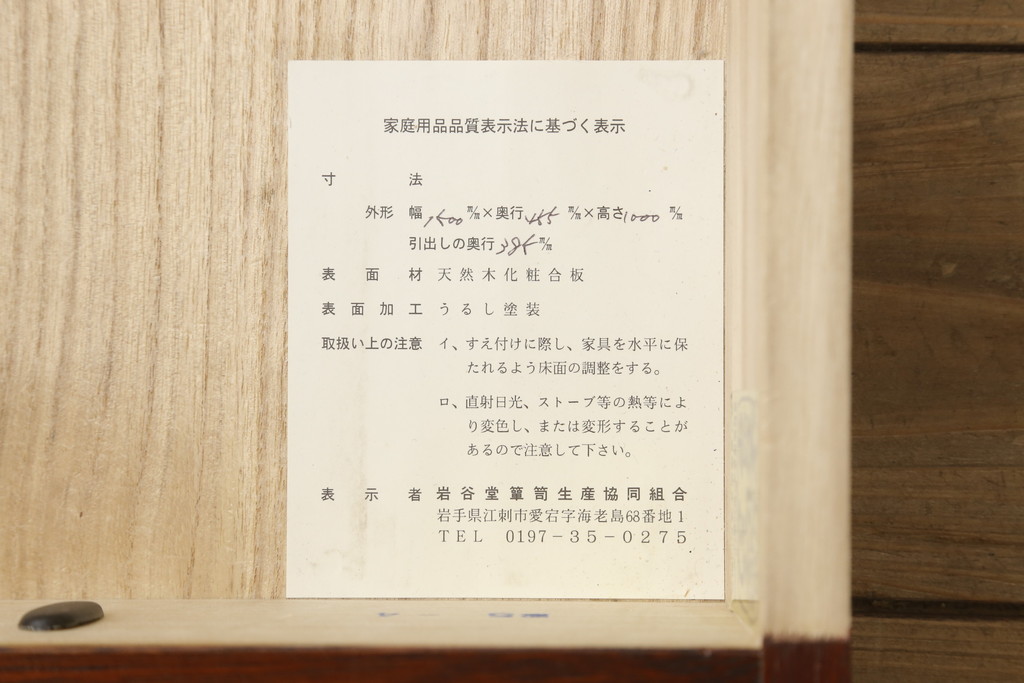 家庭用品品質表示法に基づく表示
寸法
外形 幅1500m/m×奥行455m/m×高さ1000m/m
引出しの奥行385m/m
表面材 天然木化粧合板
表面加工 うるし塗装
取扱い上の注意 イ、すえ付けに際し、家具を水平に保
たれるよう床面の調整をする。
ロ、直射日光、ストーブ等の熱等によ
り変色し、または変形することが
あるので注意して下さい。
表示者 岩谷堂簞笥生産協同組合
岩手県江刺市愛宕字海老島68番地1
TEL 0197-35-0275